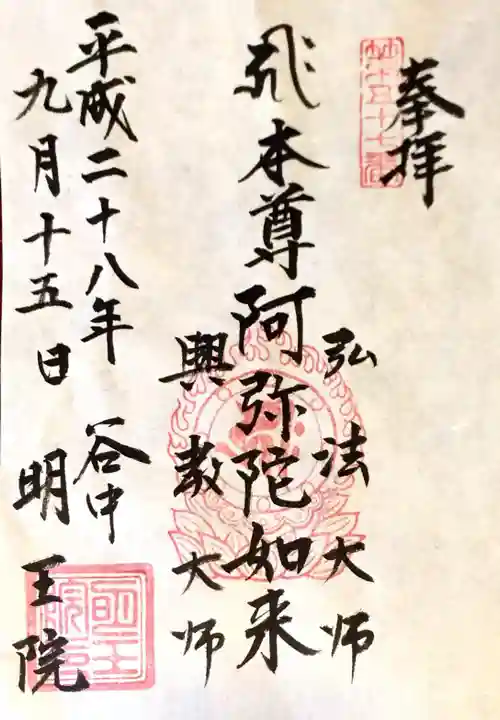 奉拝
弘法大师
本尊阿弥陀如来
興教大师
平成二十八年 谷中
九月十五日 明王院